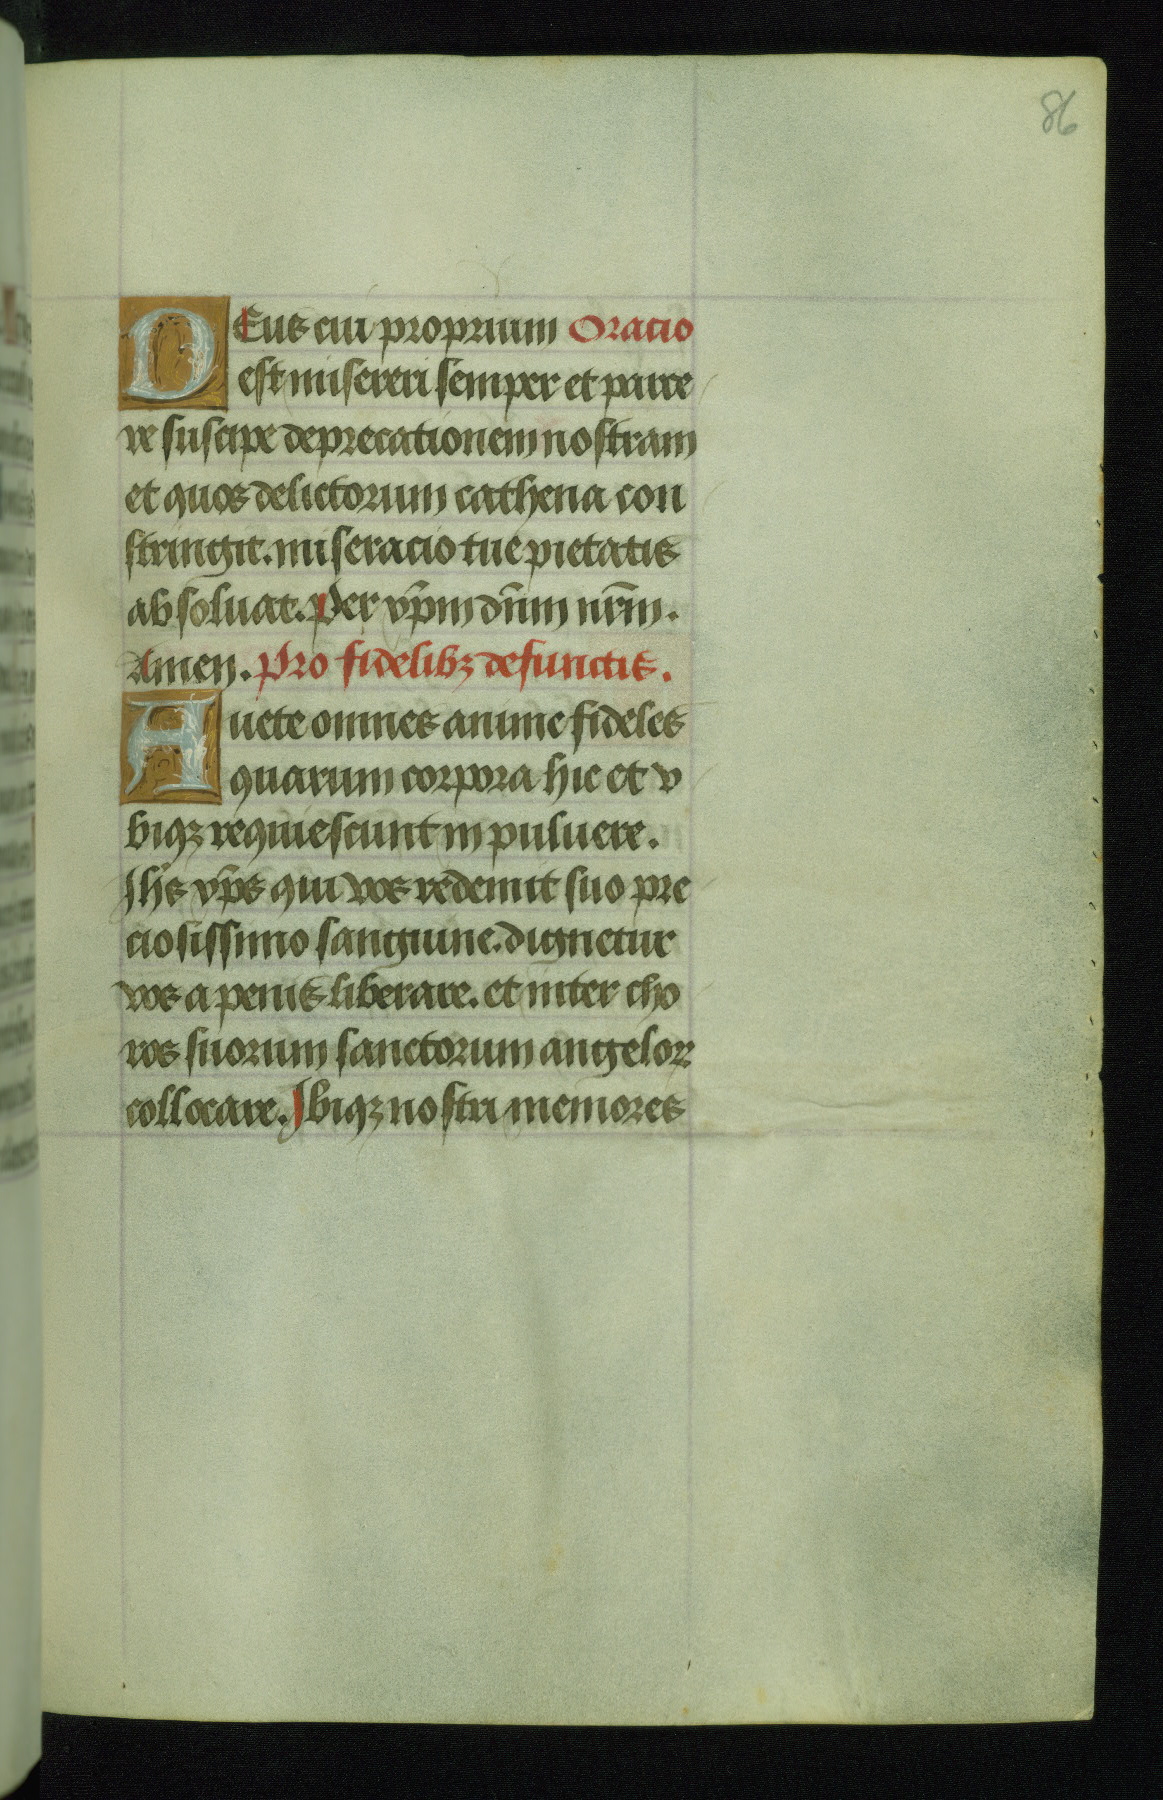 86
DEus cui proprium Oracio
est misereri semper et parce
re suscipe deprecationem nostram
et quos delictorum cathena con
stringit. miseracio tue pietatis
absoluat. Per xp̄m dn̄m nr̄m.
Amen. Pro fidelibꝫ defunctis.
Auete omnes anime fideles
quarum corpora hic et v
biqꝫ requiescunt in puluere.
Ihs xp̄s qui vos redemit suo pre
ciosissimo sanguine. dignetur
vos a penis liberare. et inter cho
ros suorum sanctorum angeloꝝ
collocare. Ibiqꝫ nostri memores